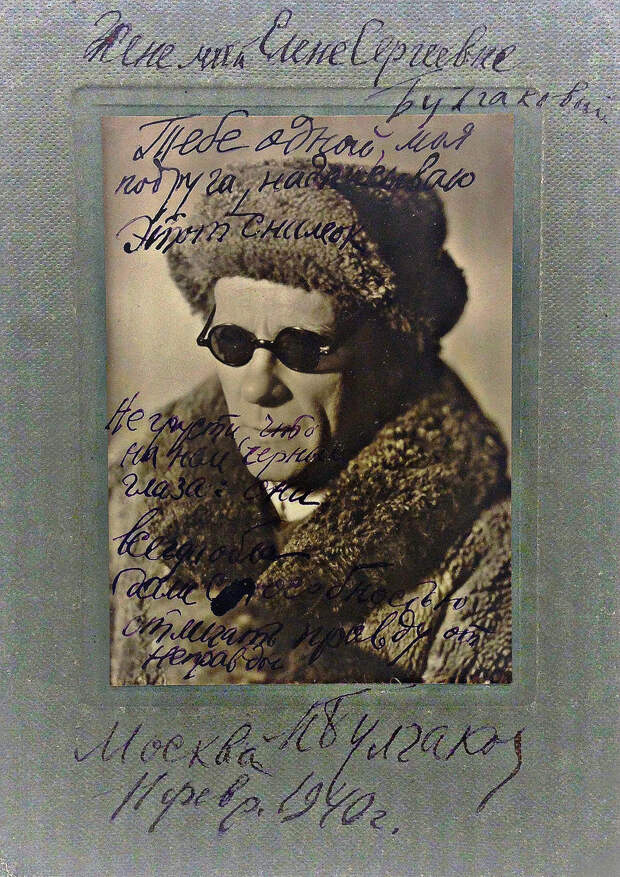 Жене моей Елене Сергеевне
Булгаковой.
Тебе одной, моя
подруга, надписываю
этот снимок
Не грусти, что
на нем черные
глаза: они
всегда обла
дали способностью
отличать правду от
неправды
Москва М. Булгаков
11 февр. 1940 г.